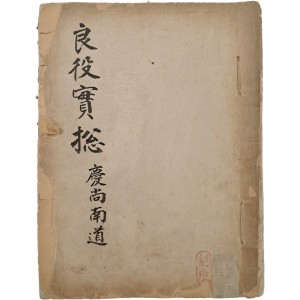 良役實摠 慶尚南道